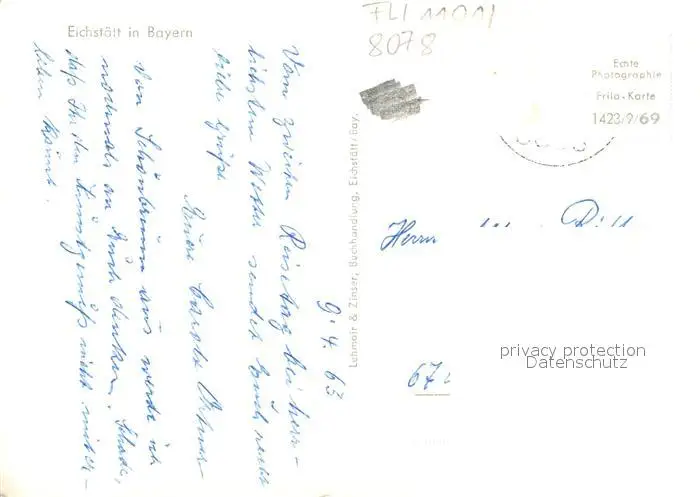 Eichstätt in Bayern
FLI 11011
8078
Echte
Photographie
Frila-Karte
1423/9/69
9.4.63
Vom zweiten Reisetag bei herr-
lichstem Wetter sendet Euch recht
liebe Grüße
Carola
Von Schönbrunn aus werde ich
nochmals an Euch denken. Schade,
daß Ihr den Kunstgenuß nicht miter-
leben könnt.
Lehmair & Zinser, Buchhandlung, Eichstätt/Bay.
Herrn
67
privacy protection
Datenschutz